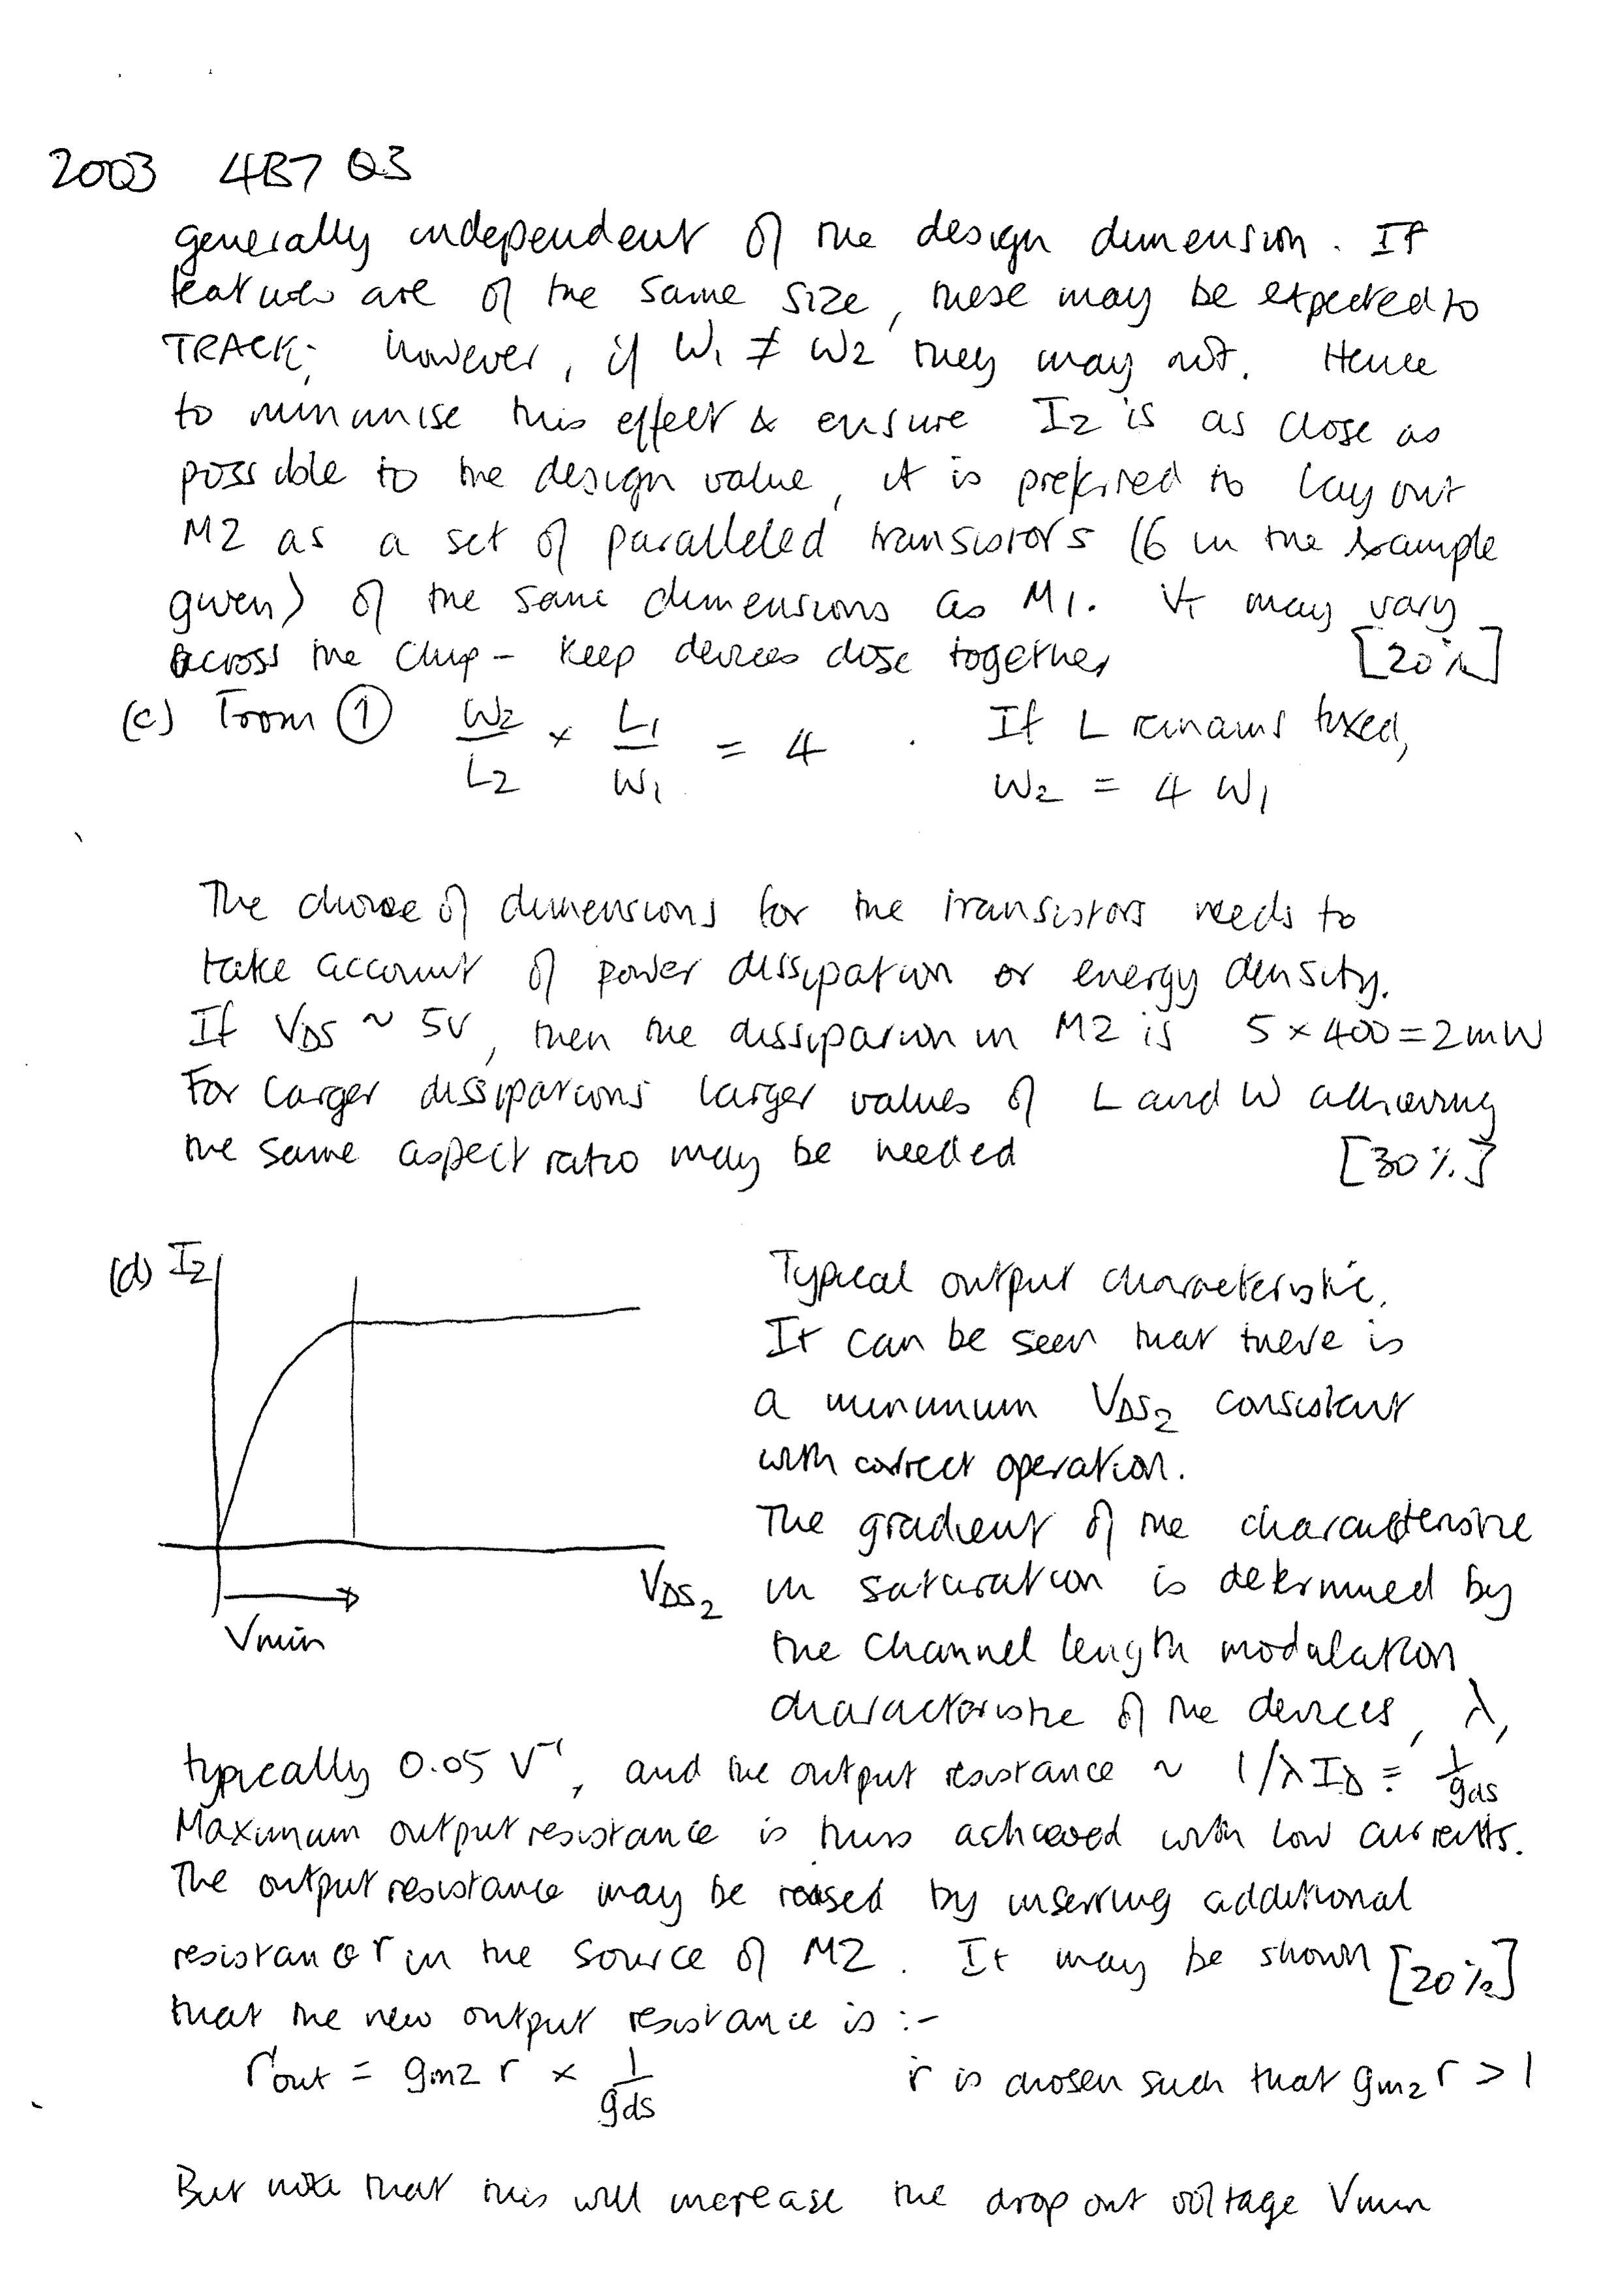 2003 4B7 Q3
generally independent of the design dimension. If
features are of the same size, these may be expected to
TRACK; however, if W1 ≠ W2 they may not. Hence
to minimise this effect & ensure I2 is as close as
possible to the design value, it is preferred to lay out
M2 as a set of paralleled transistors (6 in the example
given) of the same dimensions as M1. VT may vary
across the chip - keep devices close together [20%]
(c) From ① W2/L2 × L1/W1 = 4 . If L remains fixed,
W2 = 4 W1
The choice of dimensions for the transistors needs to
take account of power dissipation or energy density.
If VDS ~ 5V, then the dissipation in M2 is 5 × 400 = 2mW
For larger dissipations larger values of L and W achieving
the same aspect ratio may be needed [30%]
(d) I2
VDS2
Vmin
Typical output characteristic.
It can be seen that there is
a minimum VDS2 consistent
with correct operation.
The gradient of the characteristic
in saturation is determined by
the channel length modulation
characteristic of the devices, λ,
typically 0.05 V⁻¹, and the output resistance ~ 1/λID = 1/gds
Maximum output resistance is thus achieved with low currents.
The output resistance may be raised by inserting additional
resistance r in the source of M2. It may be shown [20%]
that the new output resistance is :-
rout = gm2 r × 1/gds r is chosen such that gm2 r > 1
But note that this will increase the drop out voltage Vmin